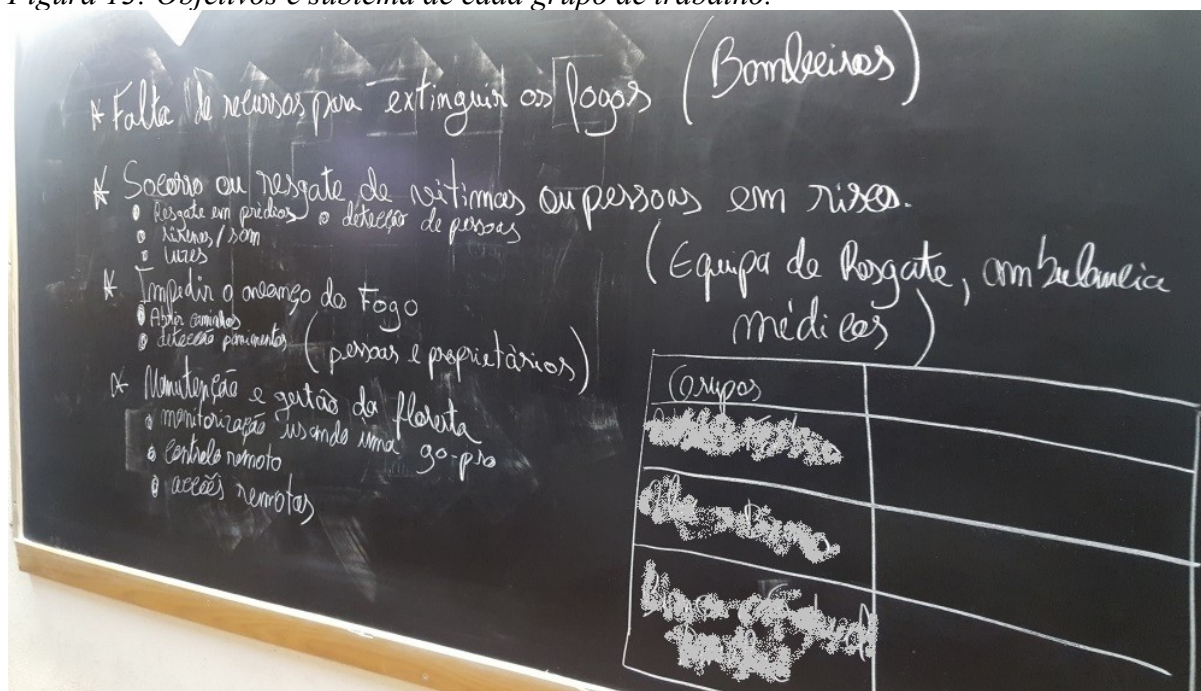 Figura 15: Objetivos e subtema de cada grupo de trabalho.
* Falta de recursos para extinguir os fogos (Bombeiros)
* Socorro ou resgate de vitimas ou pessoas em risco.
• Resgate em prédios • detecção de pessoas
• sirenes/som
• luzes
(Equipa de Resgate, ambulancia
médicos)
* Impedir o avanço do Fogo
• Abrir caminhos
• detecção
(pessoas e proprietários)
* Manutenção e gestão da floresta
• monitorização usando uma go-pro
• controlo remoto
• acções remotas
Grupos